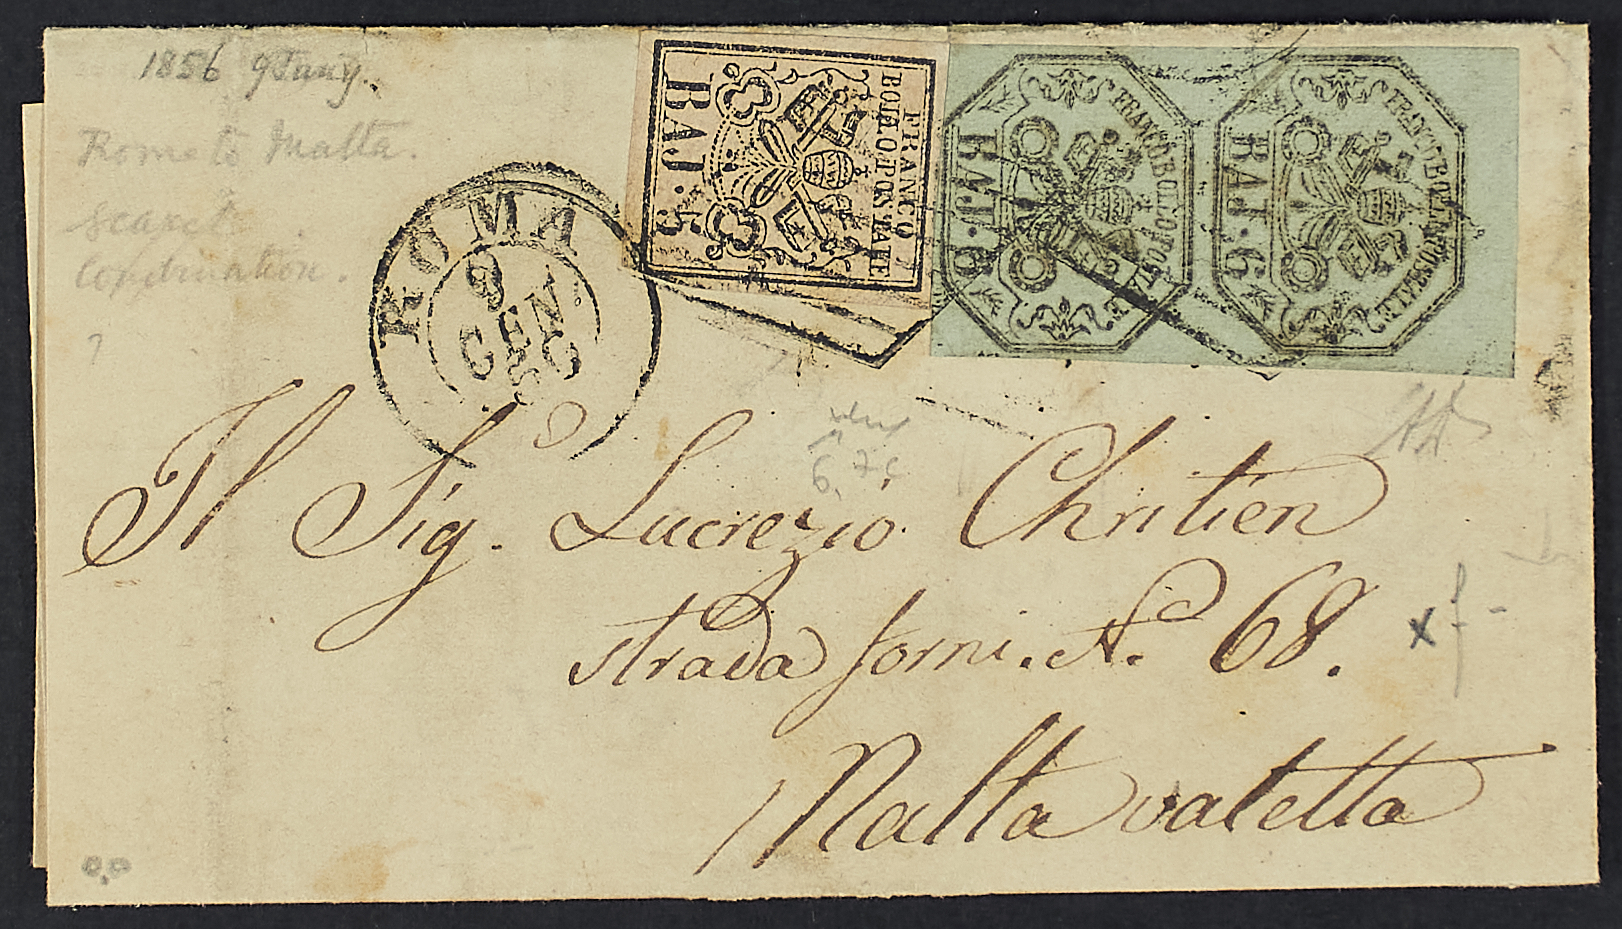 1856 9 Jany.
Rome to Malta.
Scarce
Combination.
?
ROMA
9
GEN
56
FRANCO
BOLLO POSTALE
BAJ. 5
FRANCO BOLLO POSTALE
BAJ. 6
FRANCO BOLLO POSTALE
BAJ. 6
Il Sig. Lucrezio Chritien
strada forni. No. 68.
Malta valetta
x